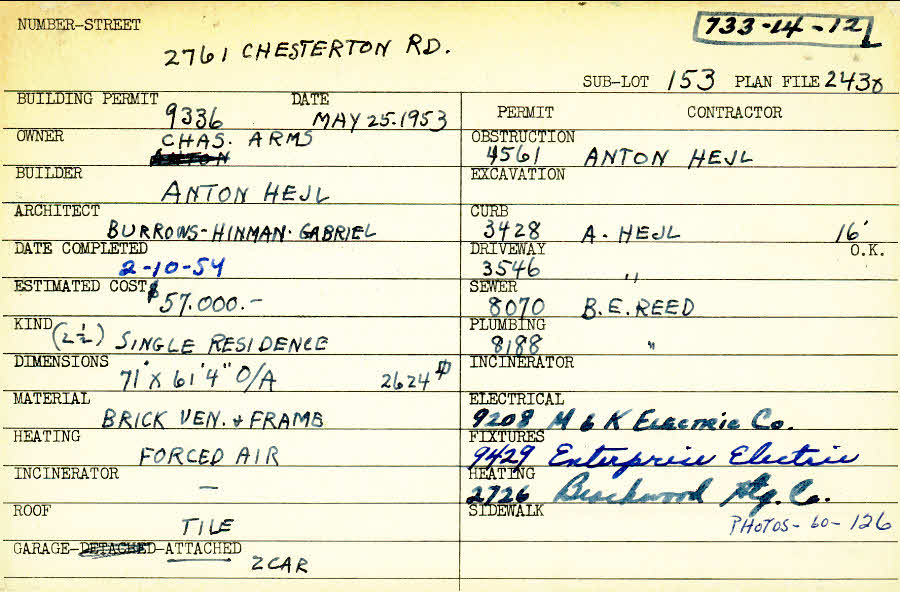 NUMBER-STREET
733-14-12
2761 CHESTERTON RD.
SUB-LOT 153 PLAN FILE 2438
BUILDING PERMIT 9336 DATE MAY 25.1953
OWNER CHAS. ARMS
ANTON
BUILDER ANTON HEJL
ARCHITECT BURROWS-HINMAN-GABRIEL
DATE COMPLETED 2-10-54
ESTIMATED COST $57.000.-
KIND (2½) SINGLE RESIDENCE
DIMENSIONS 71' X 61'4" O/A 2624
MATERIAL BRICK VEN. & FRAME
HEATING FORCED AIR
INCINERATOR —
ROOF TILE
GARAGE-DETACHED-ATTACHED 2 CAR
PERMIT CONTRACTOR
OBSTRUCTION 4561 ANTON HEJL
EXCAVATION
CURB 3428 A. HEJL 16'
DRIVEWAY 3546 " O.K.
SEWER 8070 B.E. REED
PLUMBING 8188 "
INCINERATOR
ELECTRICAL 9208 M & K ELECTRIC CO.
FIXTURES 9429 Enterprise Electric
HEATING 2726 Htg. Co.
SIDEWALK
PHOTOS-60-126